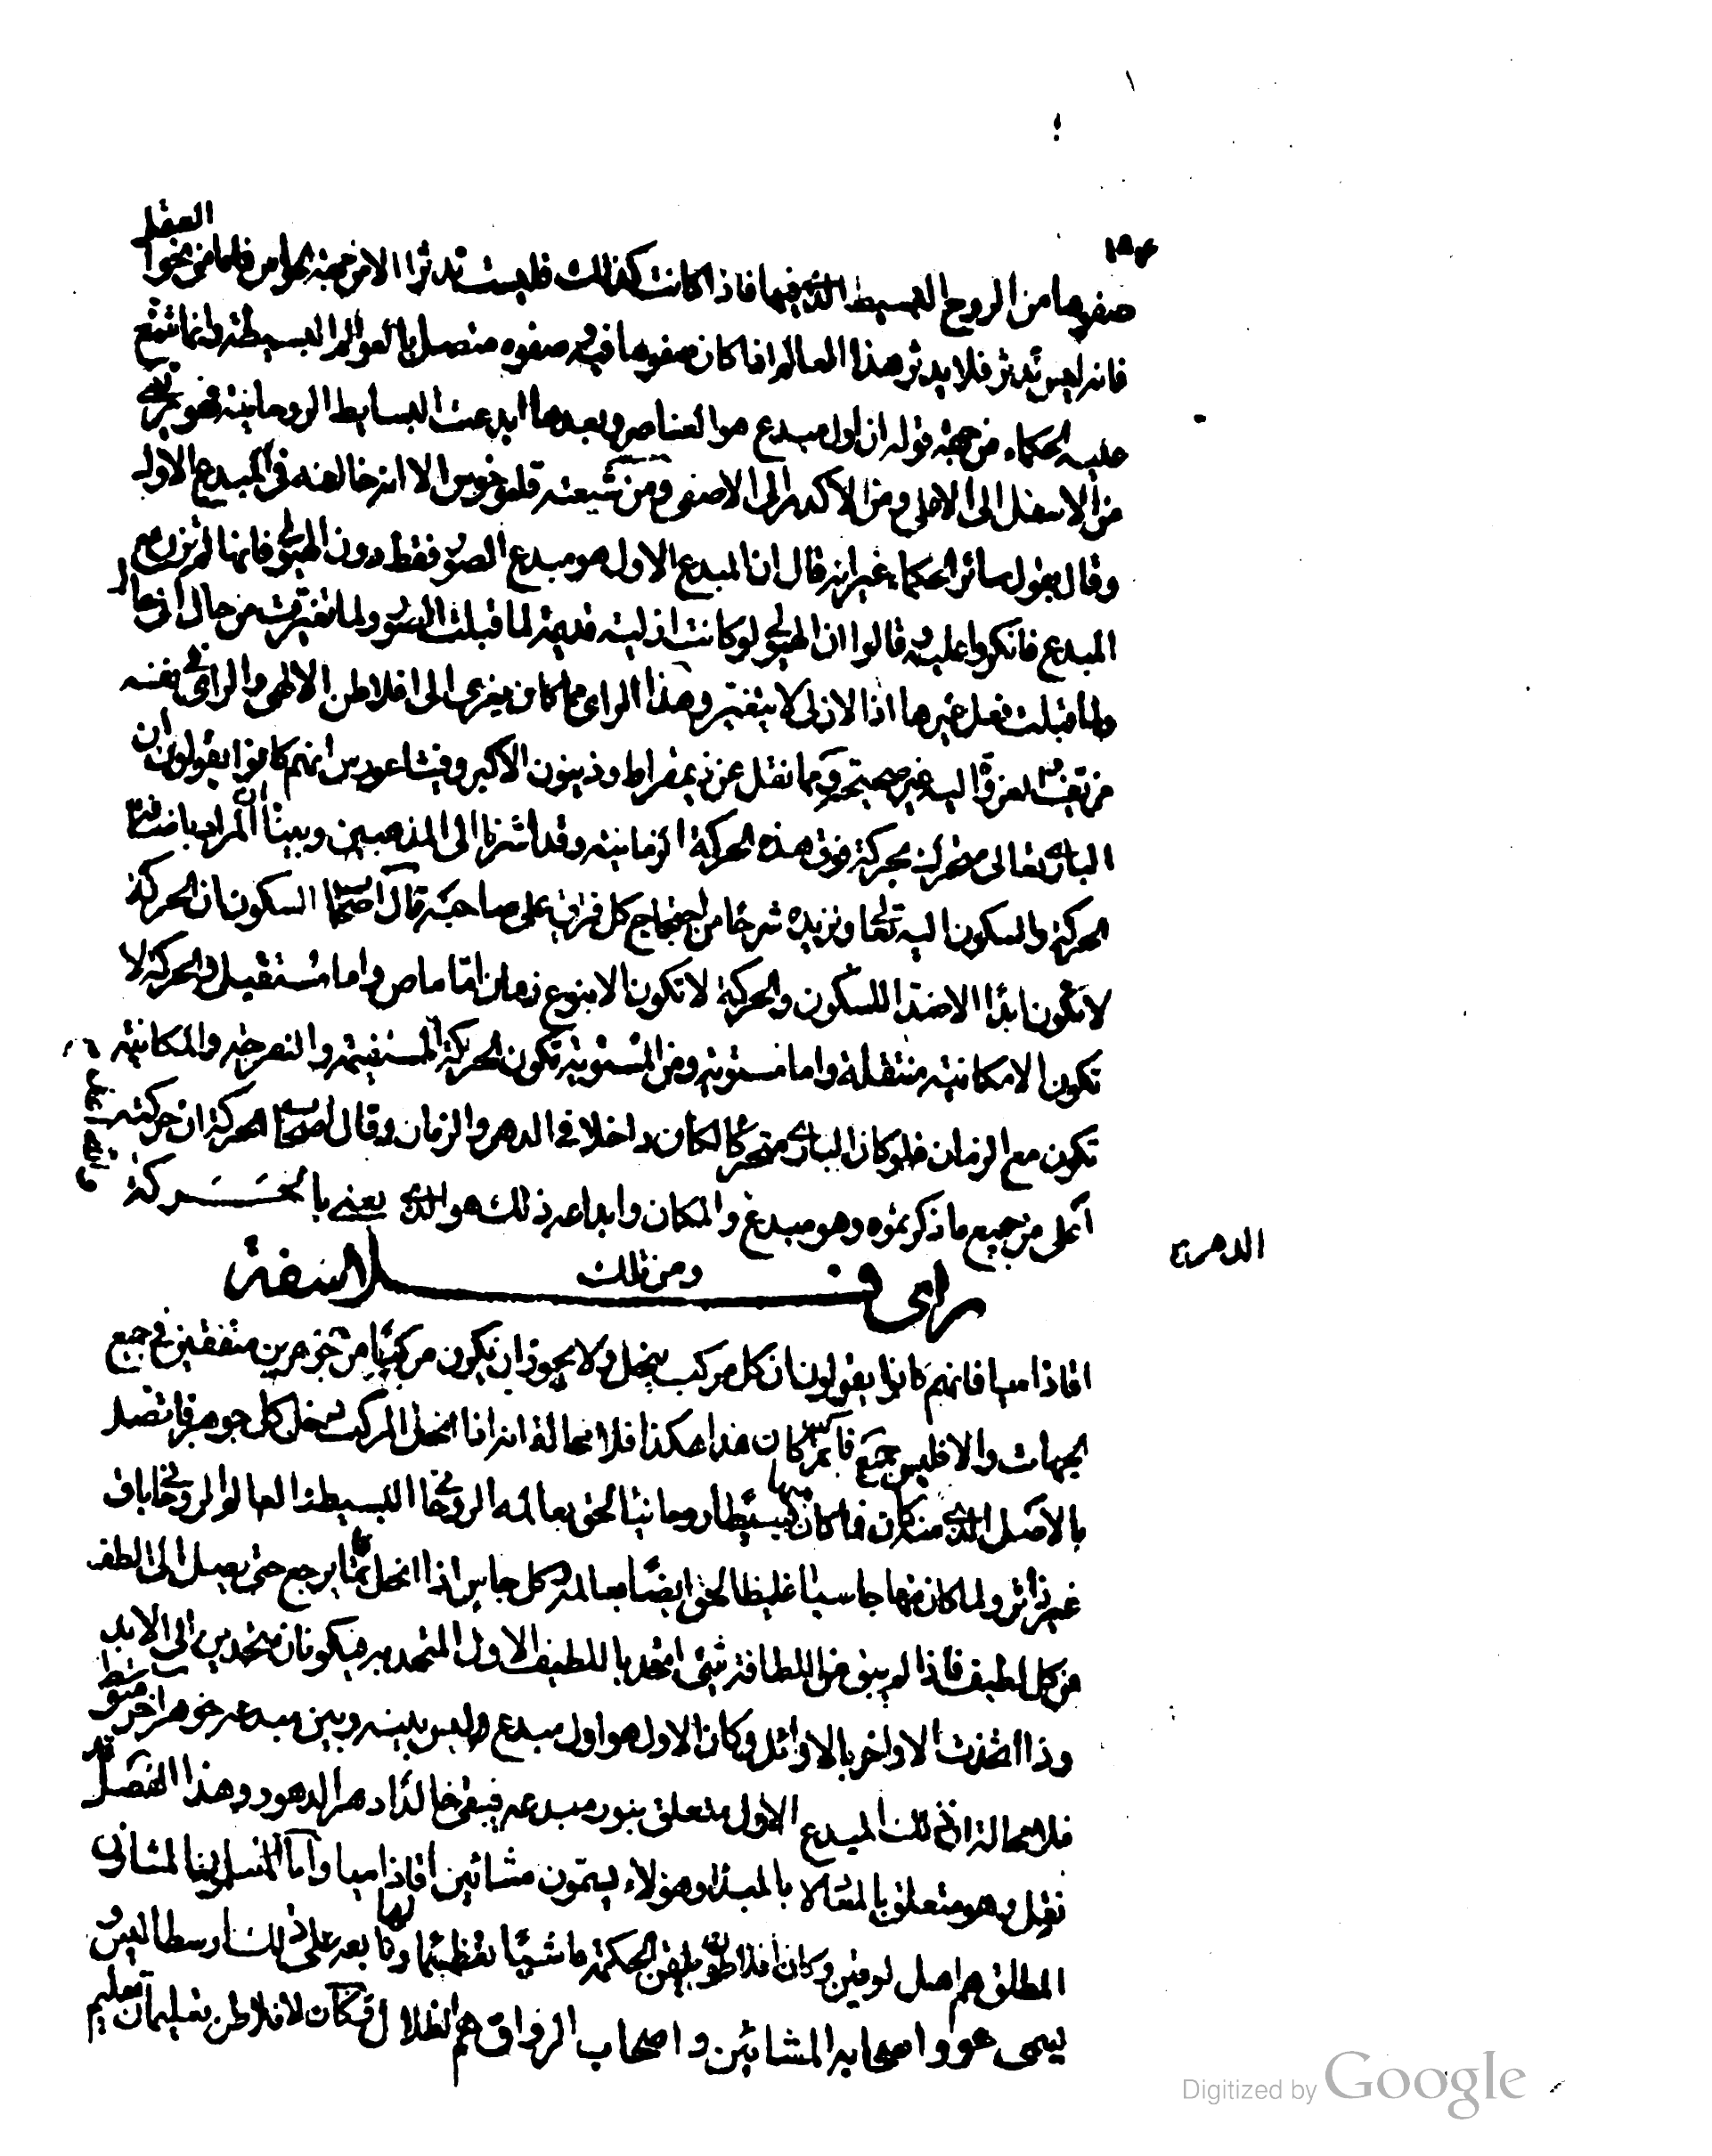 ١٥٤
العقل
صفوها من الروح البسيط الذي فيها فاذا كانت كذلك فليست تدثر الا من جهة الحواس فاما من نحو
فانه ليس تدثر فلا يدثر هذا العالم اذا كان صفوها فيه وصفوه متصل بالعوالم البسيطة وانما شنع
عليه الحكماء من جهة قوله ان اول مبدع هو العناصر وبعدها ابدعت البسايط الروحانية فهو يرتقي
من الاسفل الى الاعلى ومن الاكدر الى الاصفى ومن شيعته قلموخوس الا انه خالفه في المبدع الاول
وقال بقول سائر الحكماء غير انه قال ان المبدع الاول هو مبدع الصور فقط دون الهيولى فانها لم تزل مع
المبدع فانكروا عليه وقالوا ان الهيولى لو كانت ازلية قديمة لما قبلت الصور ولما تغيرت من حال الى حال
ولما قبلت فعل غيرها اذ الازلي لا يتغير وهذا الراي مما كان يعزى الى افلاطن الالهي والراي في نفسه
مزيف والعزوة اليه غير صحيحة ومما نقل عن ذيمقراط وزينون الاكبر وفيثاغورس انهم كانوا يقولون ان
الباري تعالى متحرك بحركة فوق هذه الحركة الزمانية وقد اشرنا الى المذهبين وبينا ان المراد باضافة
الحركة والسكون اليه تعالى ونزيده شرحا من احتجاج كل فريق على صاحبه قال اصحاب السكون ان الحركة
لا تكون ابدا الا ضد السكون والحركة لا تكون الا بنوع زمان اما ماض واما مستقبل والحركة لا
تكون الا مكانية منتقلة واما مستوية ومن المستوية تكون الحركة المستقيمة والمنعرجة والمكانية
تكون مع الزمان فلو كان الباري متحركا لكان داخلا في الدهر والزمان وقال اصحاب الحركة ان حركته
اعلى من جميع ما ذكرتموه وهو مبدع والمكان وابداعه ذلك هو الذي يعني بالحركة
الدهر
ومن ذلك
راي فلاسفة
اقاذاميا فانهم كانوا يقولون ان كل مركب ينحل ولا يجوز ان يكون مركبا من جوهرين متفقين في جميع
الجهات والا فليس بمركب فاذا كان هذا هكذا فلا محالة انه اذا انحل المركب دخل كل جوهر فاتصل
بالاصل الذي منه كان فما كان منها بسيطا روحانيا لحق بعالمه الروحاني البسيط والعالم الروحاني باق
غير داثر وما كان منها جاسيا غليظا لحق ايضا بعالمه وكل جاس اذا انحل فانما يرجع حتى يصل الى الطف
من كل لطيف فاذا لم يبق من اللطافة شيء اتحد باللطيف الاول المتحد به فيكونان متحدين الى الابد
وذا اتحدت الاواخر بالاوائل وكان الاول هو اول مبدع وليس بينه وبين مبدعه جوهر اخر متوسط
فلا محالة ان ذلك المبدع الاول متعلق بنور مبدعه فيبقى خالدا دهر الدهور وهذا الفصل قد
نقل وهو متعلق بالمعاد لا بالمبدا وهؤلاء يسمون مشائين اقاذاميا واما المشاؤن
المطلق هم اهل لوقين وكان افلاطن يلقن الحكمة ماشيا تعظيما لها وتابعه على ذلك ارسطاليس و
يسمى هو واصحابه المشائين واصحاب الرواق هم اهل الظلال وكان لافلاطن تعليمان تعليم
Digitized by Google